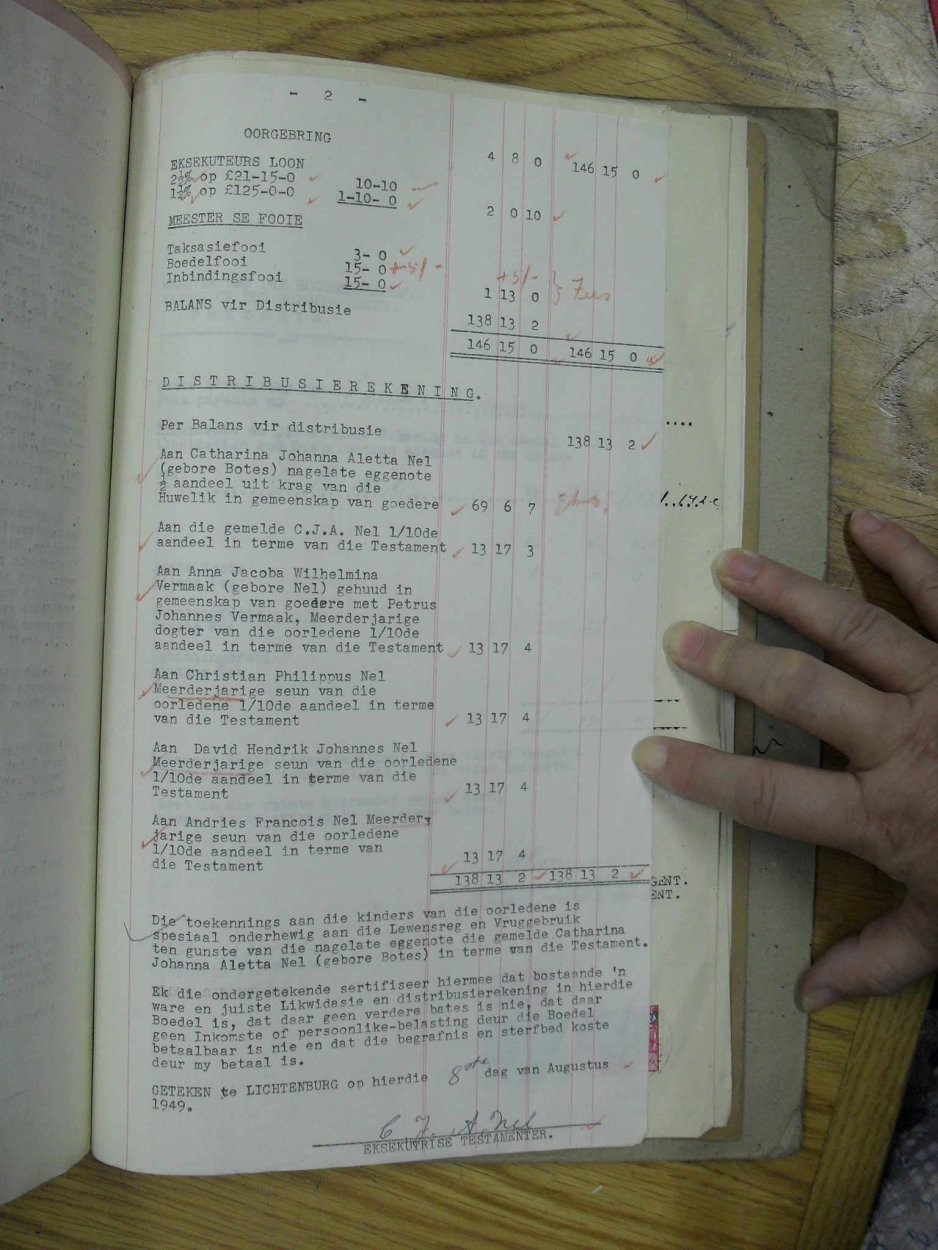 - 2 -
OORGEBRING 4 8 0 146 15 0
EKSEKUTEURS LOON
2½% op £21-15-0 10-10
1¼% op £125-0-0 1-10- 0 2 0 10
MEESTER SE FOOIE
Taksasiefooi 3- 0
Boedelfooi 15- 0 +5/- +5/- } Fees
Inbindingsfooi 15- 0 1 13 0
BALANS vir Distribusie 138 13 2
146 15 0 146 15 0
DISTRIBUSIEREKENING.
Per Balans vir distribusie 138 13 2
Aan Catharina Johanna Aletta Nel
(gebore Botes) nagelate eggenote
½ aandeel uit krag van die
Huwelik in gemeenskap van goedere 69 6 7
Aan die gemelde C.J.A. Nel 1/10de
aandeel in terme van die Testament 13 17 3
Aan Anna Jacoba Wilhelmina
Vermaak (gebore Nel) gehuud in
gemeenskap van goedere met Petrus
Johannes Vermaak, Meerderjarige
dogter van die oorledene 1/10de
aandeel in terme van die Testament 13 17 4
Aan Christian Philippus Nel
Meerderjarige seun van die
oorledene 1/10de aandeel in terme
van die Testament 13 17 4
Aan David Hendrik Johannes Nel
Meerderjarige seun van die oorledene
1/10de aandeel in terme van die
Testament 13 17 4
Aan Andries Francois Nel Meerder-
jarige seun van die oorledene
1/10de aandeel in terme van
die Testament 13 17 4
138 13 2 138 13 2
GENT.
ENT.
Die toekennings aan die kinders van die oorledene is
spesiaal onderhewig aan die Lewensreg en Vruggebruik
ten gunste van die nagelate eggenote die gemelde Catharina
Johanna Aletta Nel (gebore Botes) in terme van die Testament.
Ek die ondergetekende sertifiseer hiermee dat bostaande 'n
ware en juiste Likwidasie en distribusierekening in hierdie
Boedel is, dat daar geen verdere bates is nie, dat daar
geen Inkomste of persoonlike-belasting deur die Boedel
betaalbaar is nie en dat die begrafnis en sterfbed koste
deur my betaal is.
GETEKEN te LICHTENBURG op hierdie 8ste dag van Augustus
1949.
C J. A. Nel
EKSEKUTRISE TESTAMENTER.